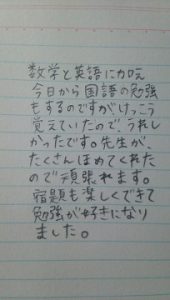 数学と英語に加え
今日から国語の勉強
もするのですがけっこう
覚えていたので、うれし
かったです。先生が、
たくさんほめてくれた
ので頑張れます。
宿題も楽しくできて
勉強が好きになり
ました。